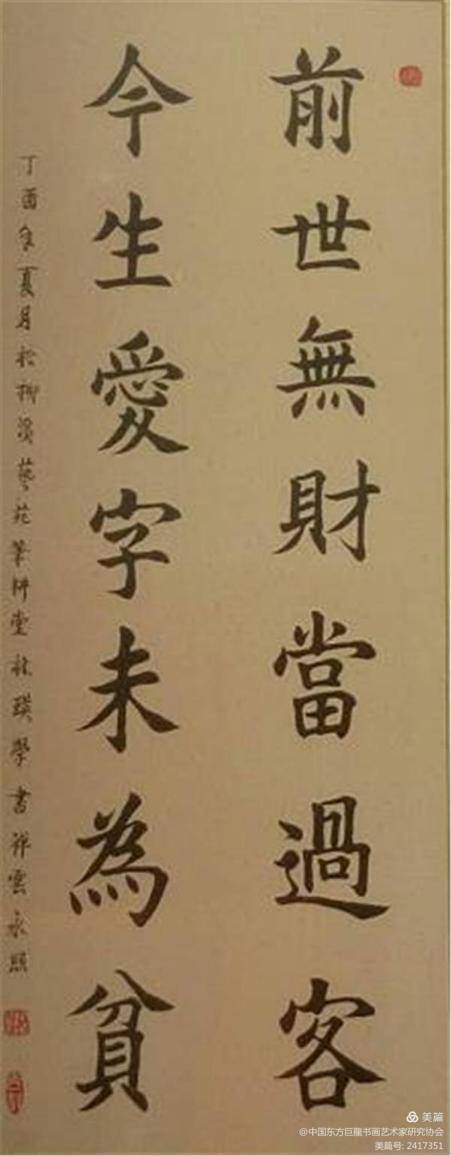 前世無財當過客
今生愛字未為貧
丁酉年夏月於柳溪藝苑筆耕堂林瑛學書祥雲永照
美篇
@中国东方巨龍书画艺术家研究协会
美篇号: 2417351